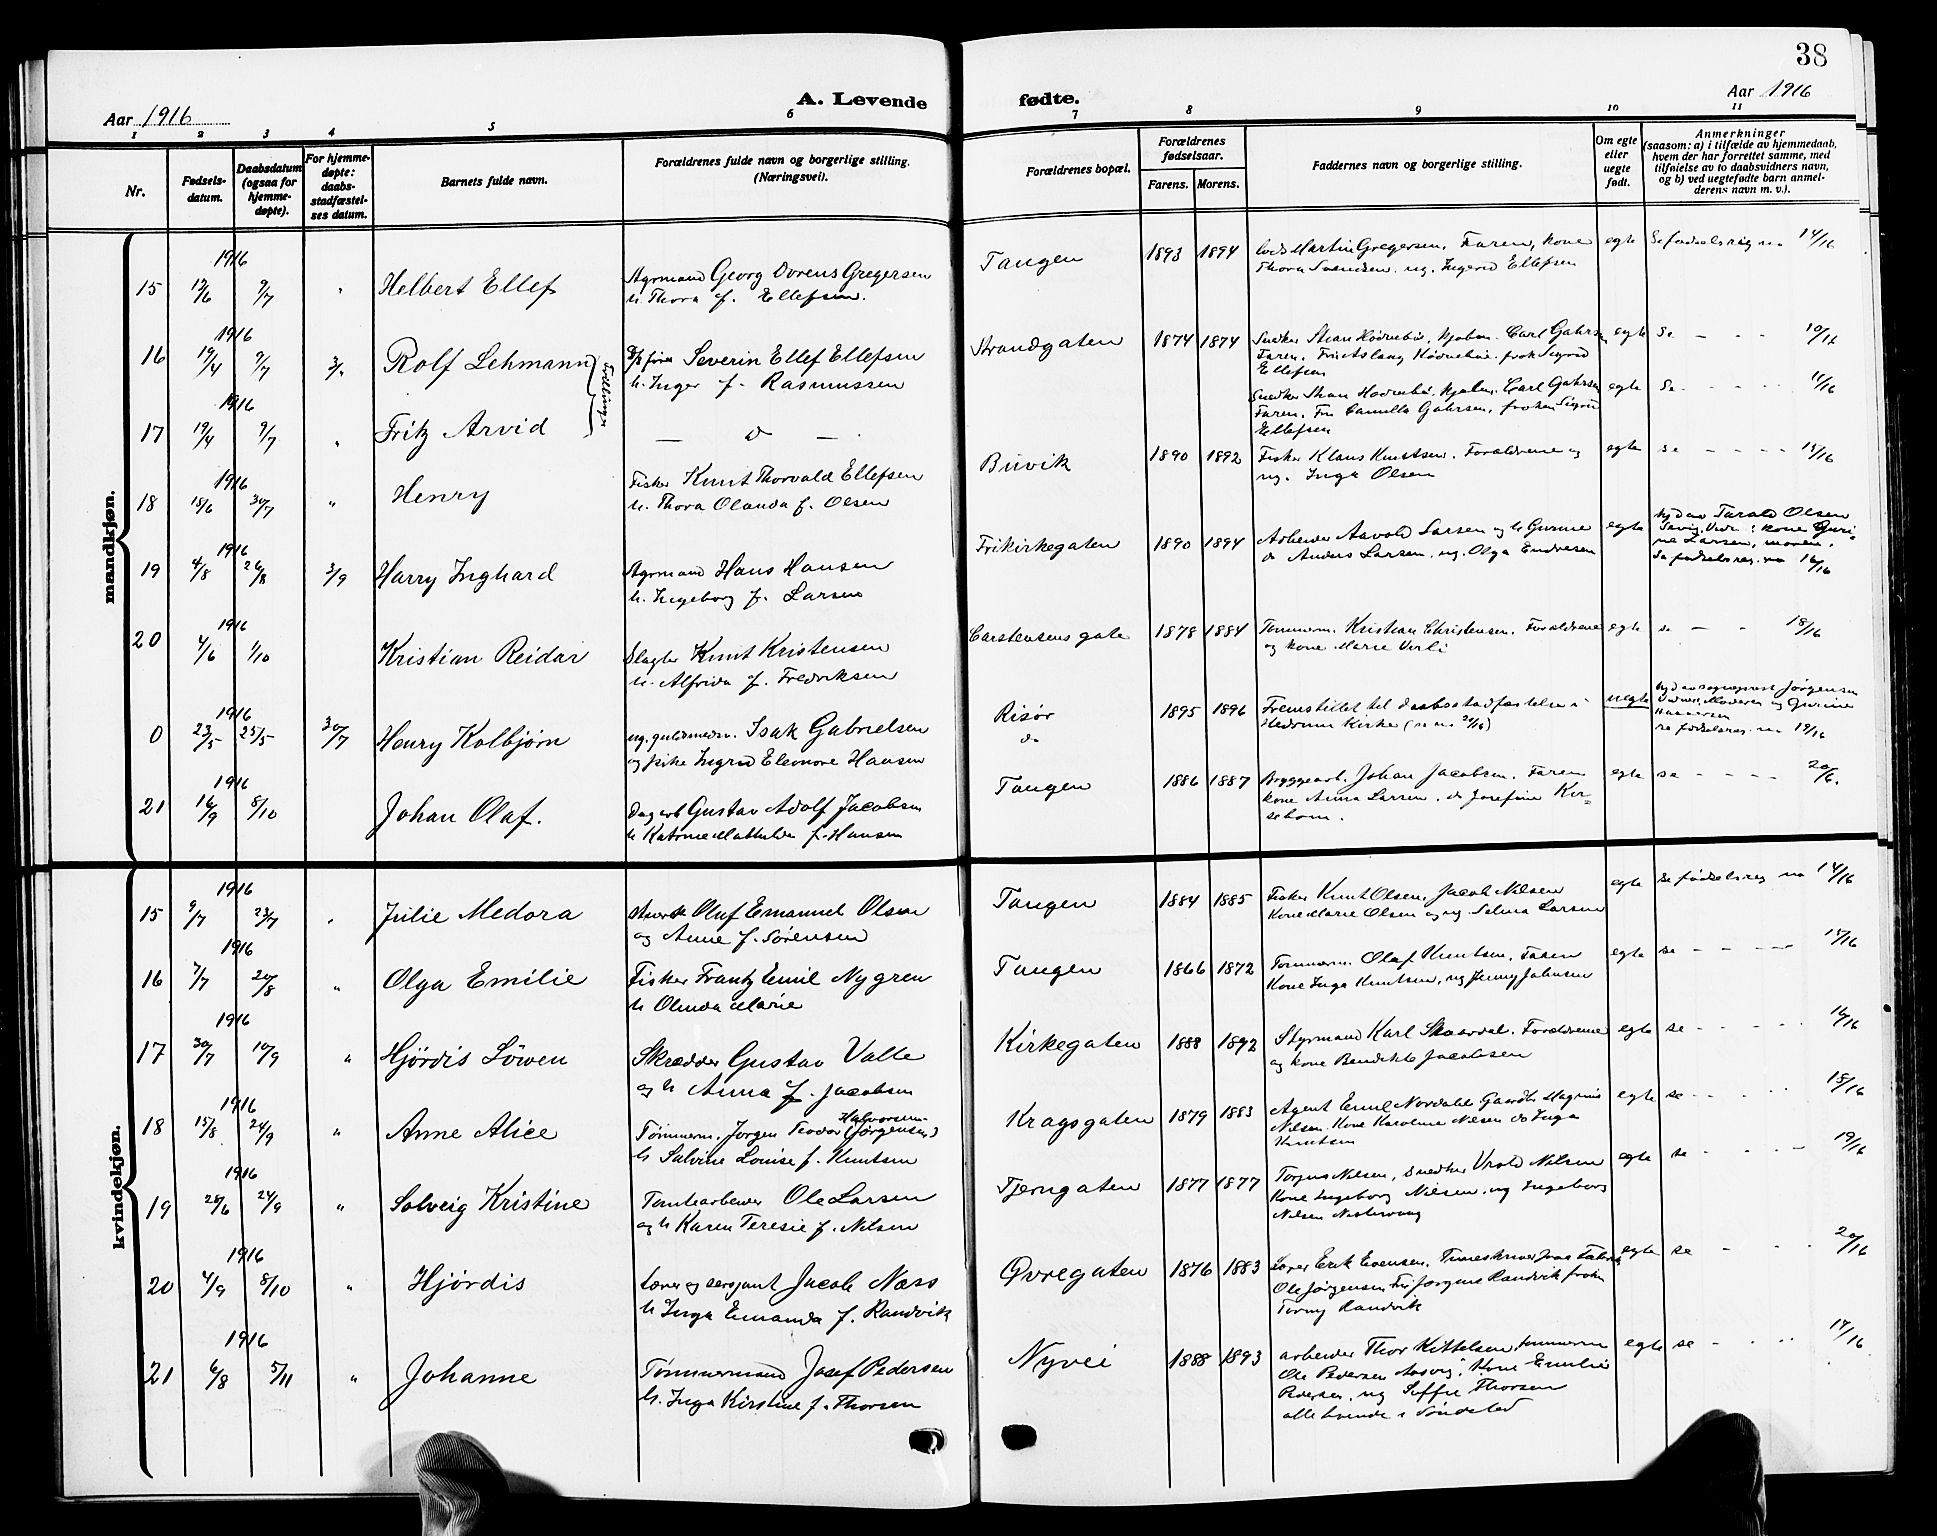 38
Aar 1916
A. Levende
fødte.
Aar 1916
1 2 3 4 5 6 7 8 9 10 11
Nr.
Fødsels-
datum.
Daabsdatum
(ogsaa for
hjemme-
døpte).
For hjemme-
døpte:
daabs-
stadfæstel-
ses datum.
Barnets fulde navn.
Forældrenes fulde navn og borgerlige stilling.
(Næringsvei).
Forældrenes bopæl.
Forældrenes
fødselsaar.
Farens. Morens.
Faddernes navn og borgerlige stilling.
Om egte
eller
uegte
født.
Anmerkninger
(saasom: a) i tilfælde av hjemmedaab,
hvem der har forrettet samme, med
tilføielse av to daabsvidners navn,
og b) ved uegtefødte barn anmel-
derens navn m. v.).
mandkjøn.
1916
15 12/6 9/7 " Helbert Ellef
Agrmand Georg Dorens Gregersen
h. Thora f. Ellefsen.
Tangen 1893 1894
Lods Martin Gregersen. Faren, kone
Thora Svendsen. ug. Ingerid Ellefsen
egte Se fødselsreg no 14/16
1916
16 19/4 9/7 Rolf Lehmann
Tvillinger
Severin Ellef Ellefsen
h. Inger f. Rasmussen
Strandgaten 1874 1874
Carl Gahrsen
Faren. frøk Sigrid
Ellefsen
egte Se - - - 10/16
1916
17 19/4 9/7 " Fritz Arvid
— d —
Carl Gahrsen
Faren. Fru Camilla Gahrsen, frøken Sigrid
Ellefsen
egte Se - - - - 11/16
1916
18 18/6 30/7 " Henry
Fisker Knut Thorvald Ellefsen
h. Thora Olanda f. Olsen
Buvik 1890 1892
Fisker Klaus Knutsen. Forældrene og
ug. Inga Olsen
egte se - - - - 15/16
1916
19 4/8 26/8 3/9 Harry Inghard
Agrmand Hans Hansen
h. Ingeborg f. Larsen
Frikirkegaten 1890 1894
Arbeider Aavold Larsen og h Gurine
do Anders Larsen, ug. Olga Endresen
egte
hjd av Tarald Olsen
Vidn: kone Guri-
ne Larsen, moren.
Se fødselsreg. no 16/16
1916
20 4/6 1/10 Kristian Reidar
Slagter Knut Kristensen
h. Alfrida f. Fredriksen
Carstensens gate 1878 1884
Tømmerm. Kristian Christensen. Forældrene
og kone Marie Verli
egte se - - 18/16
1916
0 23/5 25/5 30/7 Henry Kolbjørn
ug. guldsmedsv. Isak Gabrielsen
og pike Ingrid Eleonore Hansen
Risør
do
1895 1896
Fremstillet til daabsstadfæstelse i
Hedrum Kirke
uegte
hjd av sogneprest Jørgensen
Vidner: Moderen og Gurine
Hansen
se fødselsreg. no 19/16
1916
21 16/9 8/10 Johan Olaf.
Dagarb Gustav Adolf Jacobsen
h Katrine Mathilde f. Hansen
Tangen 1886 1887
Bryggearb. Johan Jacobsen. Faren
kone Anna Larsen. do Josefine Kir-
sebom.
egte se - - - - 20/16.
kvindekjøn.
1916
15 9/7 23/7 " Julie Medora
Oluf Emanuel Olsen
og Anne f. Sørensen
Tangen 1884 1885
Fisker Knut Olsen, Jacob Nilsen
Kone Marie Olsen og ug. Selma Larsen
egte se fødselsreg no 14/16
1916
16 7/7 20/8 " Olga Emilie
Fisker Frantz Emil Nygren
h Olinda Marie
Tangen 1866 1872
Tømmerm. Olaf Knutsen. Faren
Kone Inga Knutsen, ug Jenny Johnsen
egte se - - - - 15/16
1916
17 30/7 10/9 " Hjørdis Löwen
Skrædder Gustav Valle
og h Anna f. Jacobsen
Kirkegaten 1888 1892
Styrmand Karl Skaardal. Forældrene
og kone Bendikte Jacobsen
egte se - - - - 16/16
1916
18 15/8 24/9 " Anne Alice
Halvorsen
Tømmerm. Jørgen Teodor (Jørgensen)
h Salvine Louise f. Knutsen
Kragsgaten 1879 1883
Agent Emil Nordahl Magnus
Nilsen. Kone Karoline Nilsen do Inga
Knutsen
egte se - - - 18/16
1916
19 26/6 24/9 " Solveig Kristine
Tomtearbeider Ole Larsen
og h Karen Teresie f. Nilsen
Tjerngaten 1877 1877
Torjus Nilsen, Snedker Vrold Nilsen
Kone Ingeborg Nilsen. ug Ingeborg
Nilsen
egte se - - - - 19/16
1916
20 4/9 8/10 " Hjørdis
Lærer og sergiant Jacob Næss
h Inga Emanda f. Randvik
Øvregaten 1876 1883
Lærer Erik Evensen.
Ole Jørgensen, Fru Jørgine Randvik frøken
Randvik
egte se - - - 20/16
1916
21 6/8 5/11 " Johanne
Tømmermand Josef Pedersen
h. Inga Kirstine f. Thorsen
Nyvei 1888 1893
arbeider Thor Kittelsen tømmerm
Ole Pedersen Aasvig, Kone Emilie
Pedersen, ug Thorsen
alle boende i Søndeled
egte se - - - 17/16